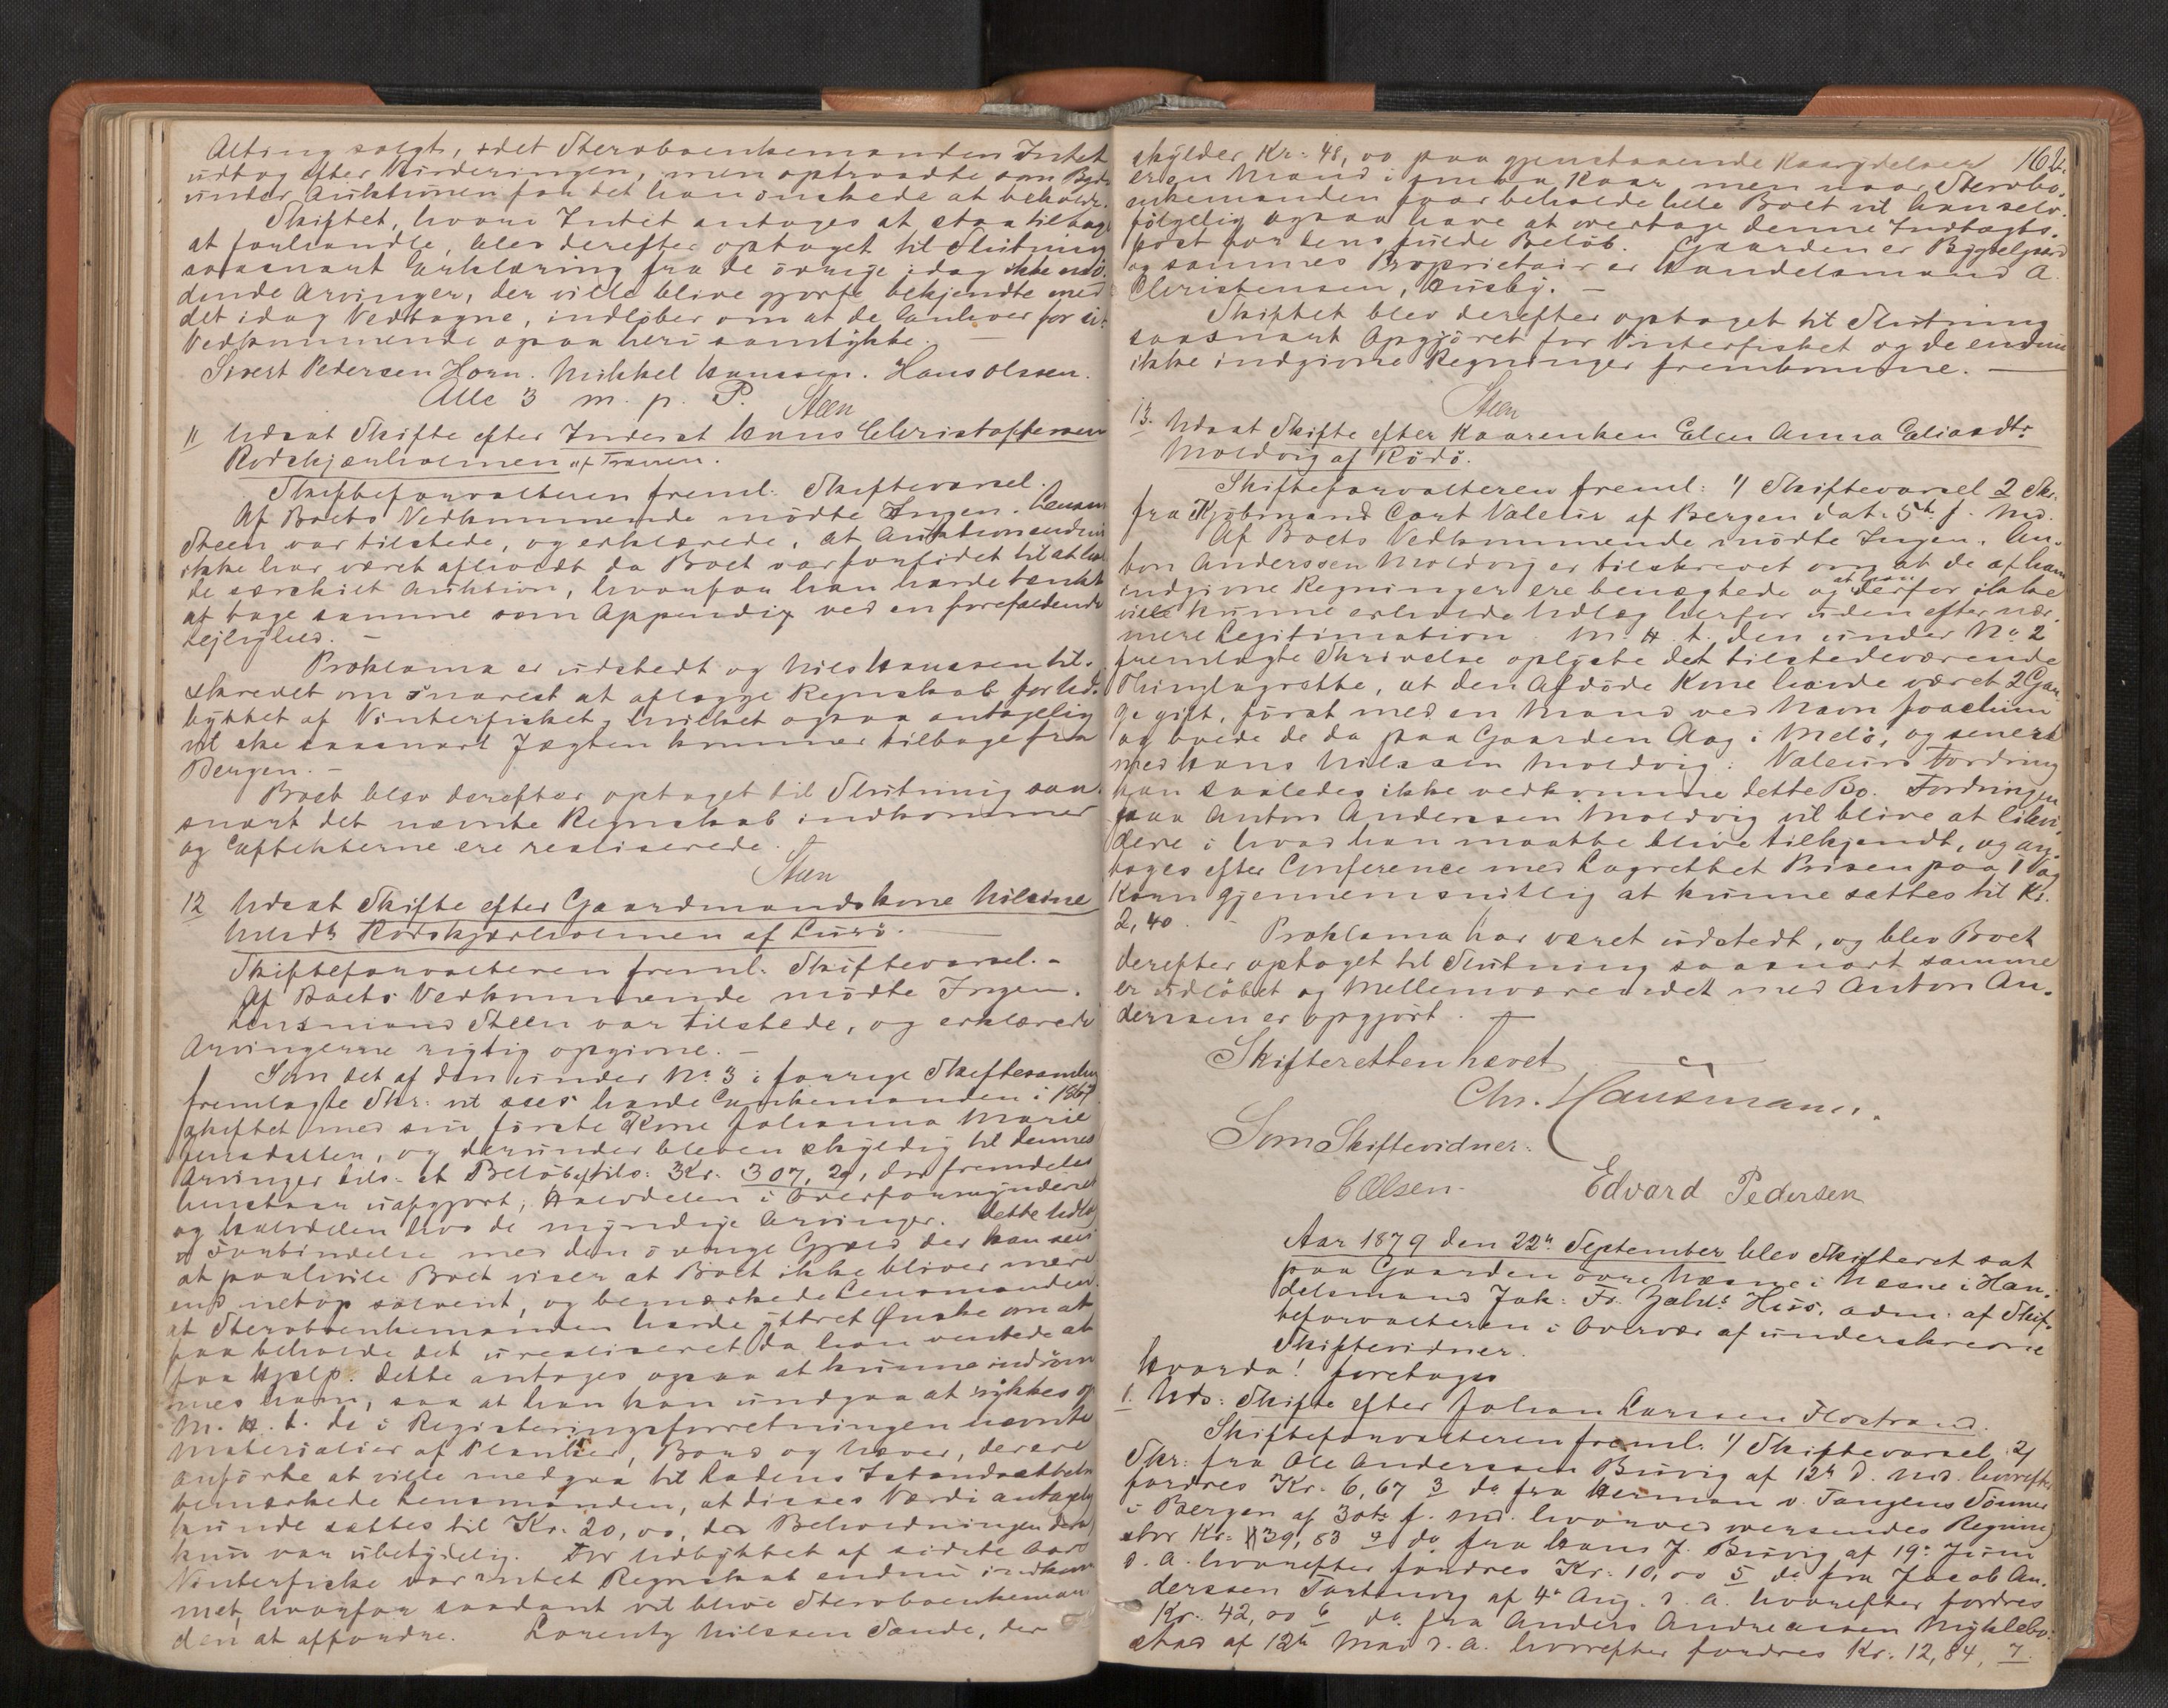 Alting solgt, idet Stervboenkemanden Intet
udtog efter Vurderingen, men optraadte som Byder
under Auktionen for det han önskede at beholde.
Skiftet, hvori Intet antages at staa tilbage
at forhandle, blev derefter optaget til Slutning
saasnart Erklæring fra de övrige idag ikke mö-
dende Arvinger, der ville blive gjorte bekjendte med
det idag Vedtagne, indlöber om at de Enhver for sit
Vedkommende ogsaa heri samtykke. —
Sivert Pedersen Horn. Mikkel Hanssen. Hans Olssen.
Alle 3 m. p. P.
Steen
11 Udsat Skifte efter Inderst Hans Christoffersen
Rödskjærholmen af Trænen.
Skifteforvalteren freml: Skiftevarsel.
Af Boets Vedkommende mödte Ingen. Lensm
Steen var tilstede, og erklærede, at Auktion endnu
ikke har været afholdt da Boet var for lidet til at hol-
de særskilt Auktion, hvorfor han havde tænkt
at tage samme som Appendix ved en forefaldende
Lejlighed. —
Proklama er udstedt og Nils Hanssen til-
skrevet om snarest at aflægge Regnskab for Ud-
byttet af Vinterfisket, hvilket ogsaa antagelig
vil ske saasnart Jægten kommer tilbage fra
Bergen. —
Boet blev derefter optaget til Slutning saa-
snart det nævnte Regnskab indkommer
og Effekterne ere realiserede.
Steen
12 Udsat Skifte efter Gaardmandskone Nilsine
Nilsdtr Rödskjærholmen af Lurö. —
Skifteforvalteren freml: Skiftevarsel. —
Af Boets Vedkommende mödte Ingen.
Lensmand Steen var tilstede, og erklærede
Arvingerne rigtig opgivne. —
Som det af den under No 3 i forrige Skiftesamling
fremlagte Skr: vil sees havde Enkemanden i 1867
skiftet med sin förste Kone Johanna Marie
Jensdatter, og derunder bleven skyldig til dennes
Arvinger tils: et Belöb af tils: Kr. 307, 20, der fremdeles
henstaar uafgjort, Halvdelen i Overformynderiet
og Halvdelen hos de myndige Arvinger. Dette Udlæg
i Forbindelse med den övrige Gjæld der kan sees
at paahvile Boet viser at Boet ikke bliver mere
end netop solvent, og bemærkede Lensmanden
at Stervboenkemanden havde yttret Önske om at
faa beholde det urealiseret da han ventede at
faa Hjælp. Dette antages ogsaa at kunne indröm-
mes ham, saa at han kan undgaa at rykkes op
M. H. t. de i Registeringsforretningen nævnte
Materialier af Planker, Bord og Næver, der ere
anförte at ville medgaa til Ladens Istandsættelse
bemærkede Lensmanden, at disses Værdi antagelig
kunde sættes til Kr. 20,00, da Beholdningen deraf
kun var ubetydelig. For Udbyttet af sidste Aars
Vinterfiske var intet Regnskab endnu indkom-
met, hvorfor saadant vil blive Stervboenkeman-
den at affordre. Lorentz Nilssen Sande, der
162.
skylder Kr: 48,00 paa gjenstaaende Kaarydelser
er en Mand i smaa Kaar, men naar Stervbo-
enkemanden faar beholde hele Boet vil han selv-
fölgelig ogsaa have at overtage denne Indtægts-
post for dens fulde Belöb. Gaarden er Bygselgaard
og sammes Proprietair er Handelsmand A.
Christensen, Husby. —
Skiftet blev derefter optaget til Slutning
saasnart Opgjöret for Vinterfisket og de endnu
ikke indgivne Regninger fremkomme. —
Steen
13. Udsat Skifte efter Kaarenken Elen Anna Eliasdtr
Moldvig af Rödö.
Skifteforvalteren freml: 1/ Skiftevarsel 2 Skr.
fra Kjöbmand Cort Valeur af Bergen dat: 5te f. Md.
Af Boets Vedkommende mödte Ingen. An-
ton Anderssen Moldvig er tilskrevet om at de af ham
indgivne Regninger ere benægtede og at han derfor ikke
vilde kunne erholde Udlæg herfor uden efter nær-
mere Legitimation. M. H. t. den under No 2
fremlagte Skrivelse oplyste det tilstedeværende
Thinglagrette, at den Afdöde Kone havde været 2 Gan-
ge gift, först med en Mand ved Navn Joachim
og boede de da paa Gaarden Aag i Melö, og senere
med Hans Nilssen Moldvig. Valeurs Fordring
kan saaledes ikke vedkomme dette Bo. Fordringen
paa Anton Anderssen Moldvig vil blive at likvi-
dere i hvad han maatte blive tilkjendt, og an-
tages efter Conference med Lagrettet Prisen paa 1 Vog
Korn gjennemsnitlig at kunne sættes til Kr.
2,40. —
Proklama har været udstedt, og blev Boet
derefter optaget til Slutning saasnart samme
er udlöbet og Mellemværendet med Anton An-
derssen er opgjort. —
Skifteretten hævet
Chr. Hausmann.
Som Skiftevidner:
Olsen. Edvard Pedersen
Aar 1879 den 22de September blev Skifteret sat
paa Gaarden övre Næsne i Næsne i Han-
delsmand Jak: Fr. Zahls Hus, adm: af Skif-
teforvalteren i Overvær af underskrevne
Skiftevidner.
Hvorda! foretoges
1. Uds: Skifte efter Johan Larssen Flostrand.
Skifteforvalteren freml: 1/ Skiftevarsel 2/
Skr: fra Ole Anderssen Buvig af 12te d. Md. hvorefter
fordres Kr. 6,67 3 do fra Herman v. Tangens Sönner
i Bergen af 30te f. Md. hvorved oversendes Regning
stor Kr: 39,83 4 do fra Hans J. Buvig af 19de Juni
d. A. hvorefter fordres Kr: 10,00 5 do fra Jacob An-
derssen af 4de Aug. d. A. hvorefter fordres
Kr. 42,00 6 do fra Anders Andreassen Myklebo-
stad af 12te Mai d. A. hvorefter fordres Kr. 12,84, 7